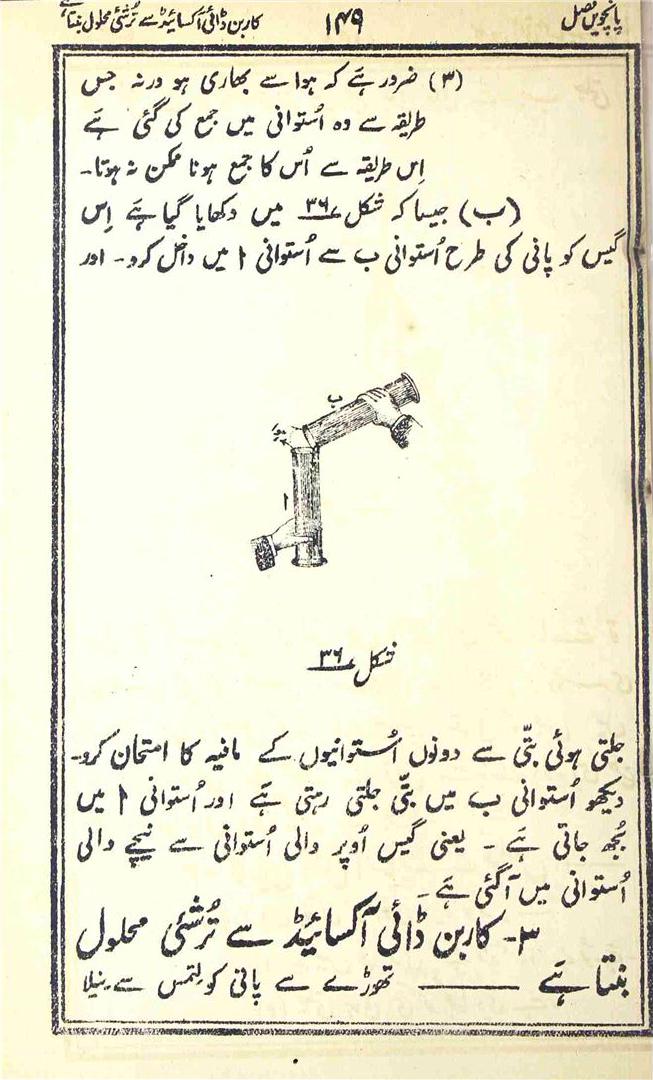 پانچویں فصل ۱۴۹ کاربن ڈائی آکسائیڈ سے تُرشئی محلول بنتا ہے
(۳) ضرور ہَے کہ ہوا سے بھاری ہو ورنہ جس
طریقہ سے وہ اُستوانی میں جمع کی گئی ہَے
اِس طریقہ سے اُس کا جمع ہونا ممکن نہ ہوتا۔
(ب) جیسا کہ شکل ۳۶ میں دکھایا گیا ہَے اِس
گیس کو پانی کی طرح اُستوانی ب سے اُستوانی ا میں داخل کرو۔ اور
ب
ہوا
ا
شکل ۳۶
جلتی ہوئی بتّی سے دونوں اُستوانیوں کے مافیہ کا امتحان کرو۔
دیکھو اُستوانی ب میں بتّی جلتی رہتی ہَے اور اُستوانی ا میں
بُجھ جاتی ہَے۔ یعنی گیس اُوپر والی اُستوانی سے نیچے والی
اُستوانی میں آگئی ہَے۔
۳۔ کاربن ڈائی آکسائیڈ سے تُرشئی محلول
بنتا ہَے ــــــ تھوڑے سے پانی کو لِتمس سے نیلا